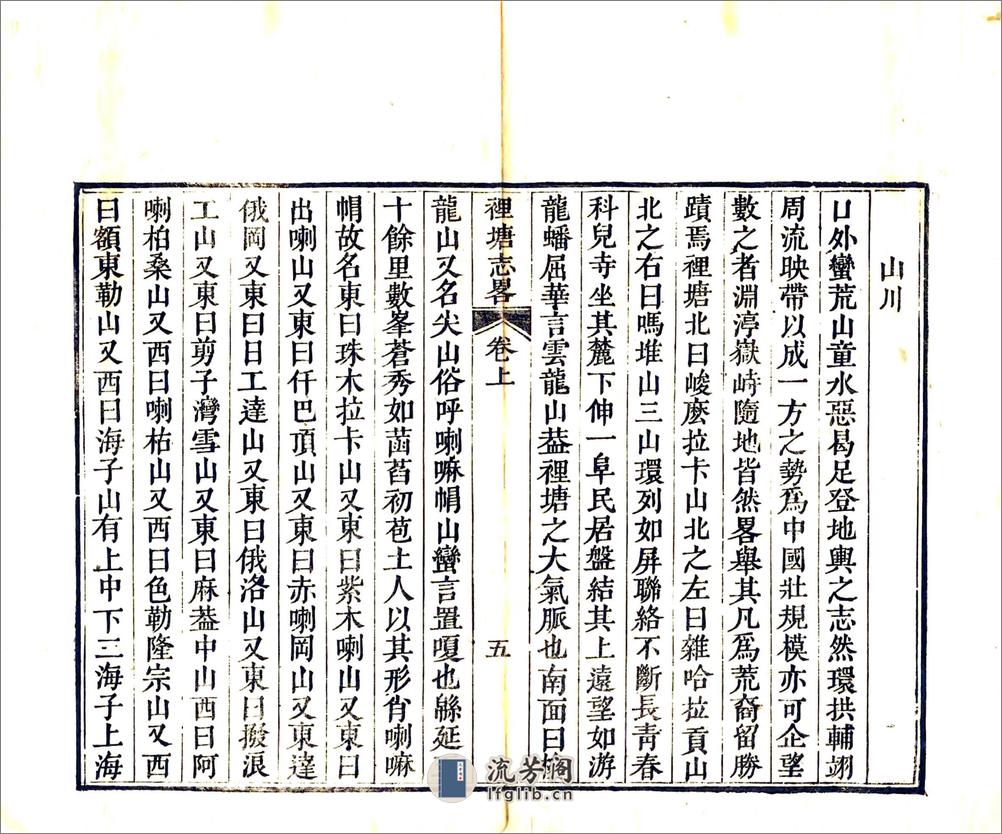 山川
口外蠻荒山童水惡曷足登地輿之志然環拱輔翊
周流映帶以成一方之勢爲中國壯規模亦可企望
數之者淵渟嶽峙隨地皆然畧舉其凡爲荒裔留勝
蹟焉裡塘北曰峻麽拉卡山北之左曰雜哈拉貢山
北之右曰嗎堆山三山環列如屏聯絡不斷長青春
科兒寺坐其麓下伸一阜民居盤結其上遠望如游
龍蟠屈華言雲龍山葢裡塘之大氣脈也南面曰
裡塘志畧 卷上 五
龍山又名尖山俗呼喇嘛帽山蠻言置嗄也緜延
十餘里數峯蒼秀如菡萏初苞土人以其形肖喇嘛
帽故名東曰珠木拉卡山又東曰紫木喇山又東曰
出喇山又東曰仟巴頂山又東曰赤喇岡山又東達
俄岡又東曰日工達山又東曰俄洛山又東曰撥浪
工山又東曰剪子灣雪山又東曰麻葢中山西曰阿
喇柏桑山又西曰喇枯山又西曰色勒隆宗山又西
曰額東勒山又西曰海子山有上中下三海子上海
流芳閣
lfglib.cn